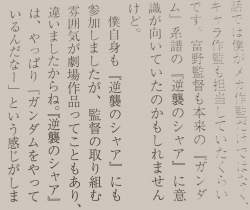 話では僕がメカ作監で
キャラ作監も担当していたくらい
です。富野監督も本来の『ガンダ
ム』系譜の『逆襲のシャア』に意
識が向いていたのかもしれません
けど。
僕自身も『逆襲のシャア』にも
参加しましたが、監督の取り組む
雰囲気が劇場作品ってこともあり、
違いましたからね。『逆襲のシャア』
は、やっぱり「ガンダムをやって
いるんだな」という感じがしま